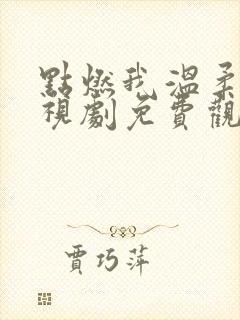 點燃我溫柔
視劇免費觀
賈巧萍